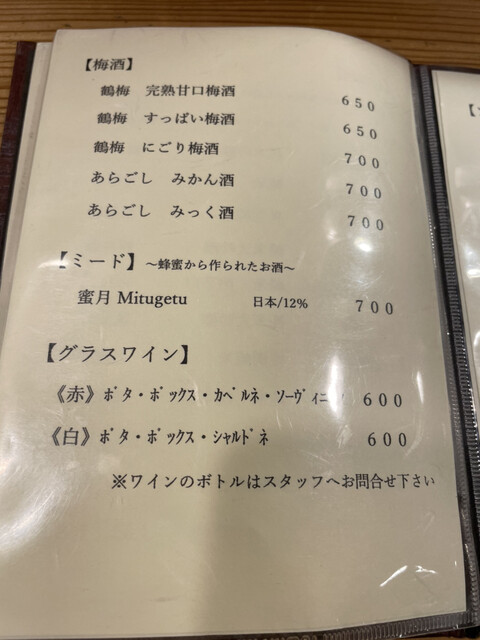 【梅酒】
鶴梅 完熟甘口梅酒 650
鶴梅 すっぱい梅酒 650
鶴梅 にごり梅酒 700
あらごし みかん酒 700
あらごし みっく酒 700
【ミード】～蜂蜜から作られたお酒～
蜜月 Mitugetu 日本/12% 700
【グラスワイン】
《赤》ﾎﾞﾀ・ﾎﾞｯｸｽ・ｶﾍﾞﾙﾈ・ｿｰｳﾞｨﾆ 600
《白》ﾎﾞﾀ・ﾎﾞｯｸｽ・ｼｬﾙﾄﾞﾈ 600
※ワインのボトルはスタッフへお問合せ下さい